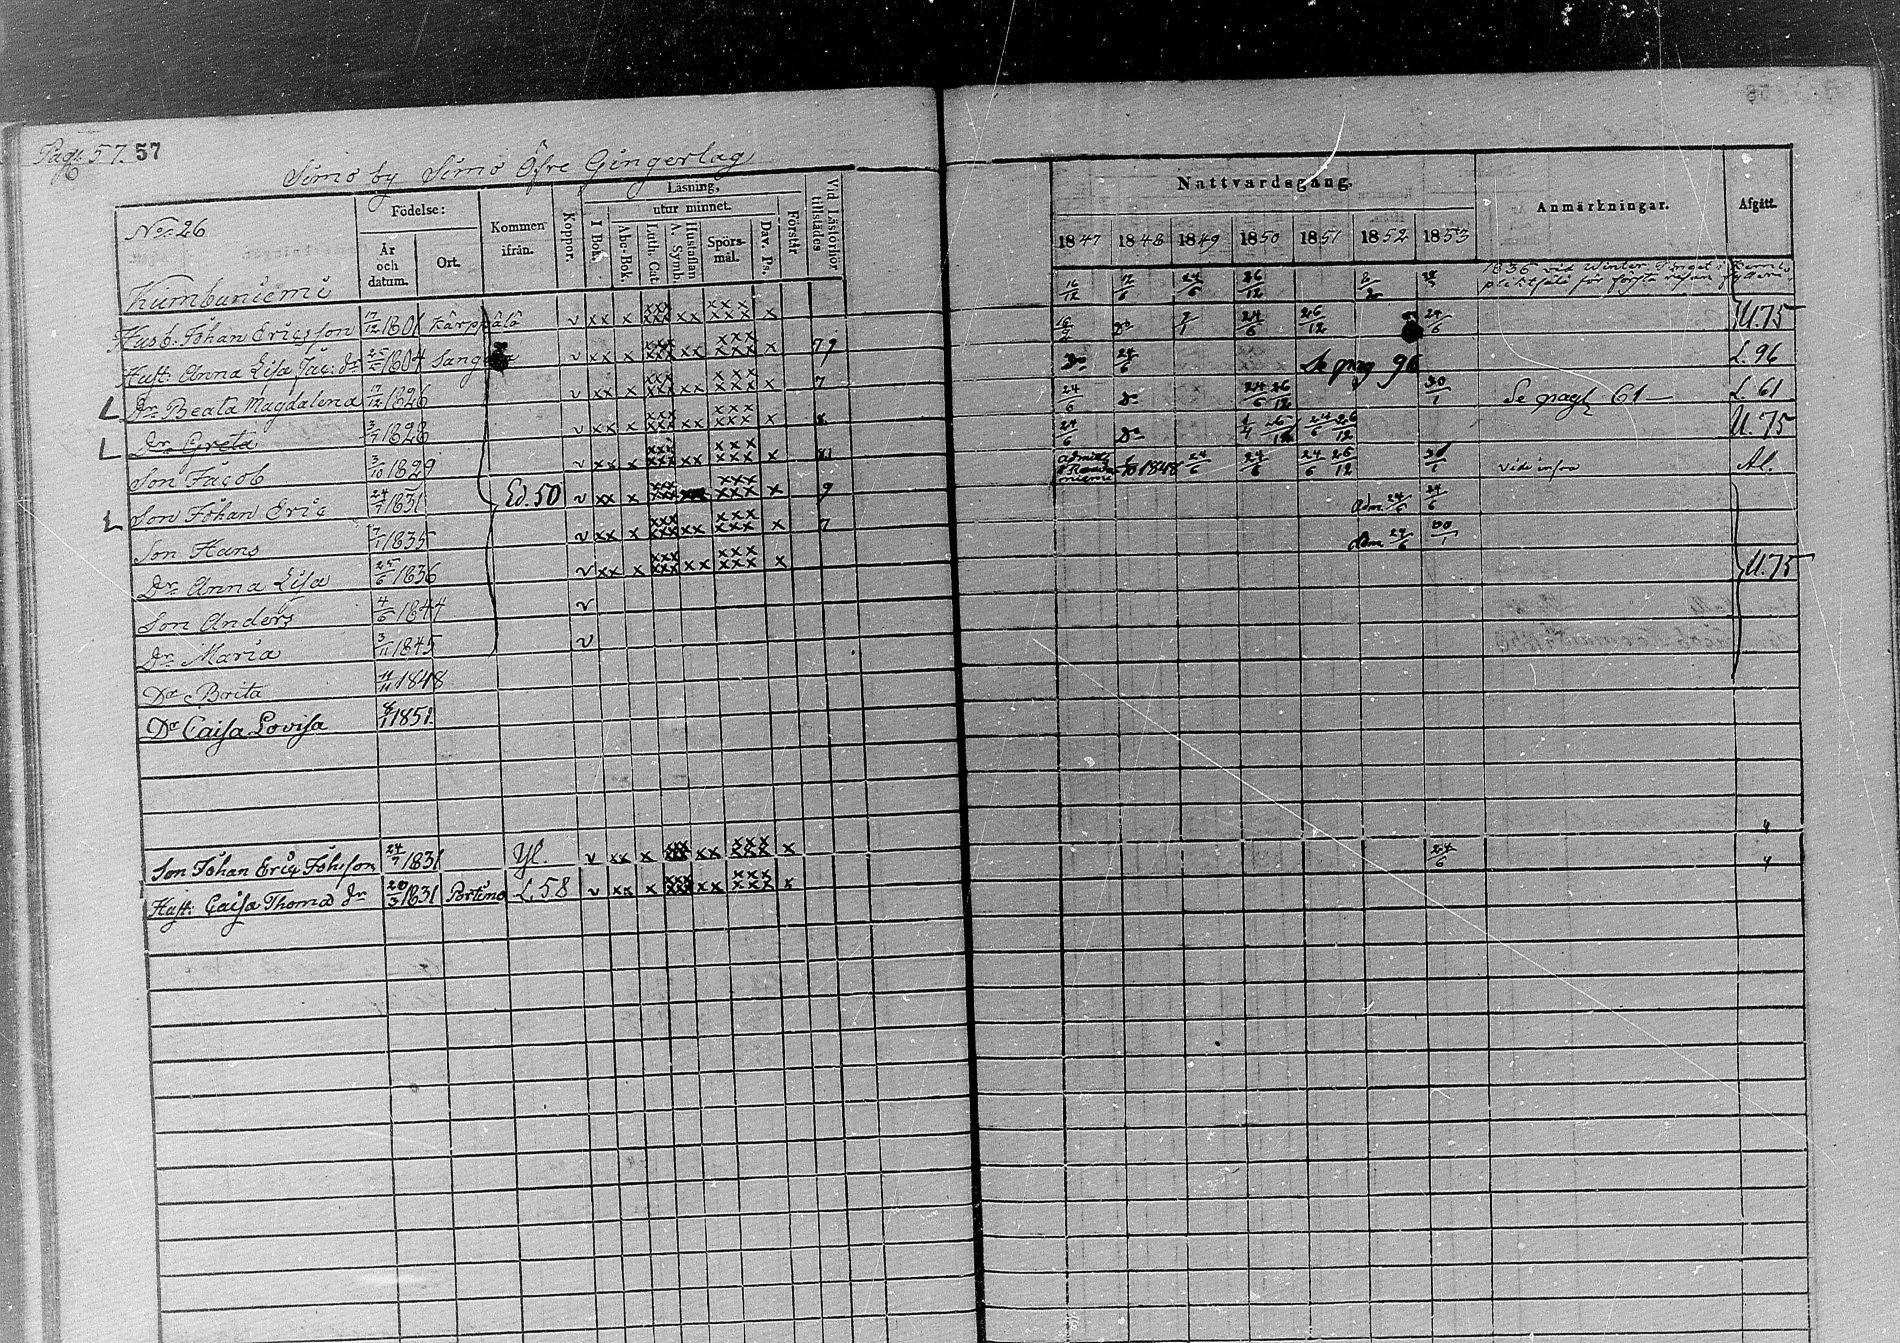 Pag. 57. 57
Simo by Simo Öfre Gingerlag
No: 26
Födelse:
År och datum.
Ort.
Kommen ifrån.
Koppor.
Läsning,
I Bok.
utur minnet.
Abc-Bok.
Luth. Cat.
A. Symb.
Hustaflan
Spörsmål.
Dav. Ps.
Förstår
Vid Läsförhör tillstädes
Nattvardsgång.
1847 1848 1849 1850 1851 1852 1853
Anmärkningar.
Afgått.
Kumbuniemi
Husb. Johan Ericsson 17/12 1801 Kärppälä v xx x xxx xxx xx xxx xxx x
16/12 12/6 24/6 26/12
1836 vid Winter Tinget
plichtfäld för första resan
Hust: Anna Lisa Jac: dr 25/ 1804 v xx x xxx xxx xx xxx xxx x 79
Do 24/6 26/12 24/6 U. 75
Dr Beata Magdalena 17/12 1826 v xx x xxx xxx xx xxx xxx x 7
Do 24/6 Se pag 96 L. 96
Dr Greta 3/7 1828 v xx x xxx xxx xx xxx xxx x 8
24/6 Do 24/6 26/12 30/1 Se pag 61 L. 61
Son Jacob 3/10 1829 v xx x xxx xxx xx xxx xxx x
24/6 Do 26/12 24/6 26/12 U. 75
Son Johan Eric 24/7 1831 Ed. 50 v xx x xxx xxx xxx xxx x 9
1848 24/6 24/6 24/6 26/12 vid infra Al.
Son Hans 7/1 1835 v xx x xxx xxx xx xxx xxx x 7
adm. 24/6 24/6
Dr Anna Lisa 25/6 1836 v xx x xxx xxx xx xxx xxx x
adm. 24/6 30/1
Son Anders 4/6 1844 v U. 75
Dr Maria 3/11 1845 v
Dr Brita 1848
Dr Caisa Lovisa 1851
Son Johan Eric Johsson 24/7 1831 Yl. v xx x xxx xxx xx xxx xxx x 24/6
Hust: Caisa Thomæ dr 20/3 1831 Portimo L. 58 v xx x xxx xxx xx xxx xxx x